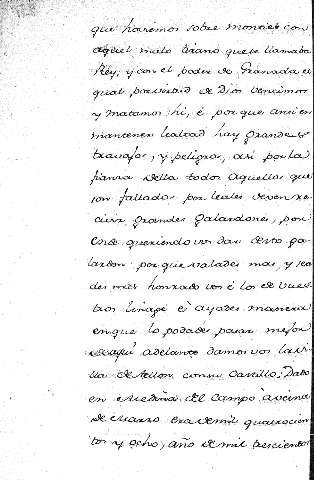 que haremos sobre Montiel con
aquel malo tirano que se llamaba
Rey, y con el poder de Granada el
qual por virtud de Dios vencimos
y matamos hi, é porque ansi en
mantener lealtad hay grandes
travajos, y peligros, asi por la
fianza della todos aquellos que
son fallados por leales deven re-
civir grandes galardones, por
ende queriendo vos dar desto ga-
lardon porque valades mas, y sea
des mas honrado vos é los de vues
tros linage é ayades manera
en que lo podades pasar mejor
de aqui adelante damos vos la vi-
lla de con su Castillo; Dado
en Medina del Campo á veinte
de Marzo era de mil quatrocien
tos y ocho, año de mil trescientos